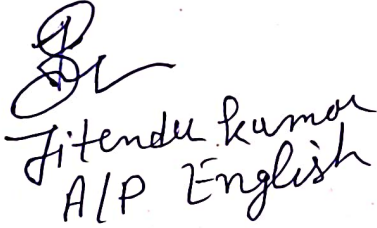 Jitendu Kumar
A/P English